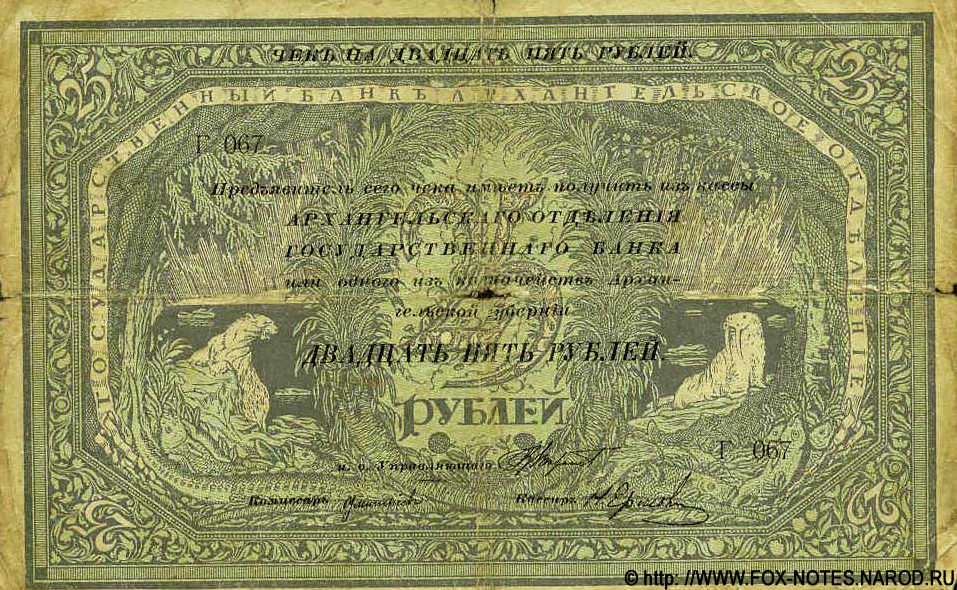 ЧЕКЪ НА ДВАДЦАТЬ ПЯТЬ РУБЛЕЙ.
25 25
ГОСУДАРСТВЕННЫЙ БАНКЪ АРХАНГЕЛЬСКОЕ ОТДѢЛЕНІЕ
Г 067
Предъявитель сего чека имѣетъ получить изъ кассы
АРХАНГЕЛЬСКАГО ОТДѢЛЕНІЯ
ГОСУДАРСТВЕННАГО БАНКА
или одного изъ казначействъ Архан-
гельской губерніи
ДВАДЦАТЬ ПЯТЬ РУБЛЕЙ.
25
РУБЛЕЙ
Г 067
и. о. Управляющаго
Комиссаръ Кассиръ
25 25
© http: //WWW.FOX-NOTES.NAROD.RU/